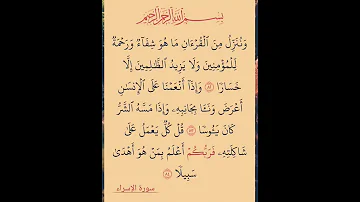 بِسْمِ اللَّهِ الرَّحْمَٰنِ الرَّحِيمِ
وَنُنَزِّلُ مِنَ ٱلْقُرْءَانِ مَا هُوَ شِفَآءٌ وَرَحْمَةٌ
لِّلْمُؤْمِنِينَ وَلَا يَزِيدُ ٱلظَّٰلِمِينَ إِلَّا
خَسَارًا ٨٢ وَإِذَآ أَنْعَمْنَا عَلَى ٱلْإِنسَٰنِ
أَعْرَضَ وَنَـَٔا بِجَانِبِهِۦ وَإِذَا مَسَّهُ ٱلشَّرُّ
كَانَ يَـُٔوسًا ٨٣ قُلْ كُلٌّ يَعْمَلُ عَلَىٰ
شَاكِلَتِهِۦ فَرَبُّكُمْ أَعْلَمُ بِمَنْ هُوَ أَهْدَىٰ
سَبِيلًا ٨٤
سورة الإسراء